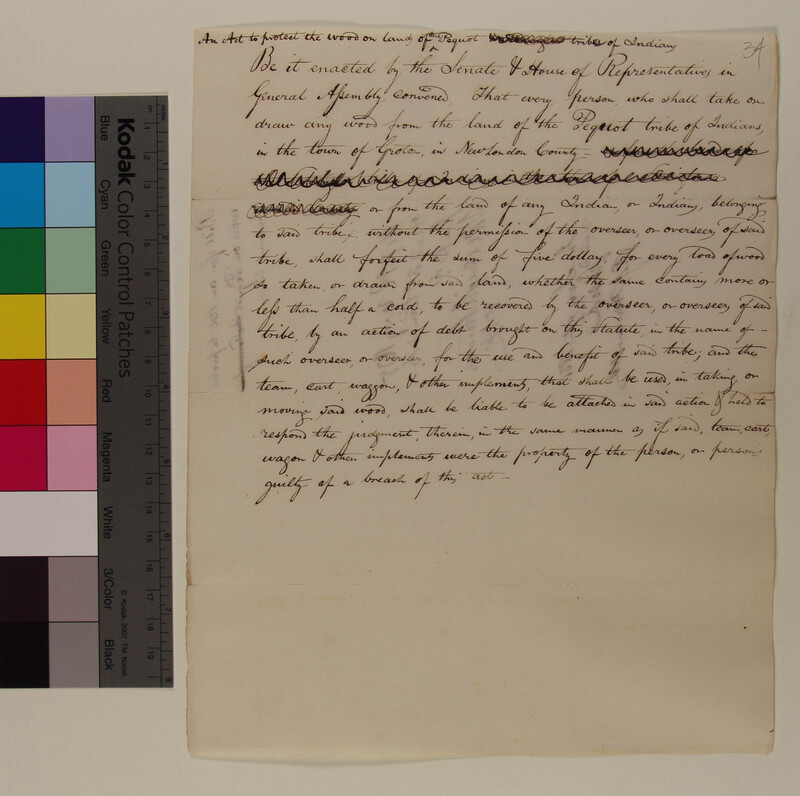 An Act to protect the wood on land, of the Pequot tribe of Indians
34
Be it enacted by the Senate & House of Representatives in
General Assembly convened, That every person, who shall take or
draw any wood from the land of the Pequot tribe of Indians,
in the town of Groton, in New London County–
or from the land of any Indian, or Indians, belonging
to said tribe, without the permission of the overseer, or overseers, of said
tribe, shall forfeit the sum of five dollars, for every load of wood
so taken, or drawn from said land, whether the same contains more or
less than half a cord, to be recovered by the overseer, or overseers, of said
tribe, by an action of debt brought on this statute, in the name of –
such overseer, or overseers, for the use and benefit of said tribe; and the
team, cart, waggon, & other implements, that shall be used, in taking or
moving said wood, shall be liable to be attached in said action & held to
respond the judgment, therein, in the same manner as if said, team, cart,
wagon & other implements were the property of the person, or persons
guilty of a breach of this act –
Kodak Color Control Patches
Blue
Cyan
Green
Yellow
Red
Magenta
White
3/Color
Black
© Kodak, 2007 TM: Kodak
cm 1 2 3 4 5 6 7 8 9 10 11 12 13 14 15 16 17 18 19
inches 1 2 3 4 5 6 7 8